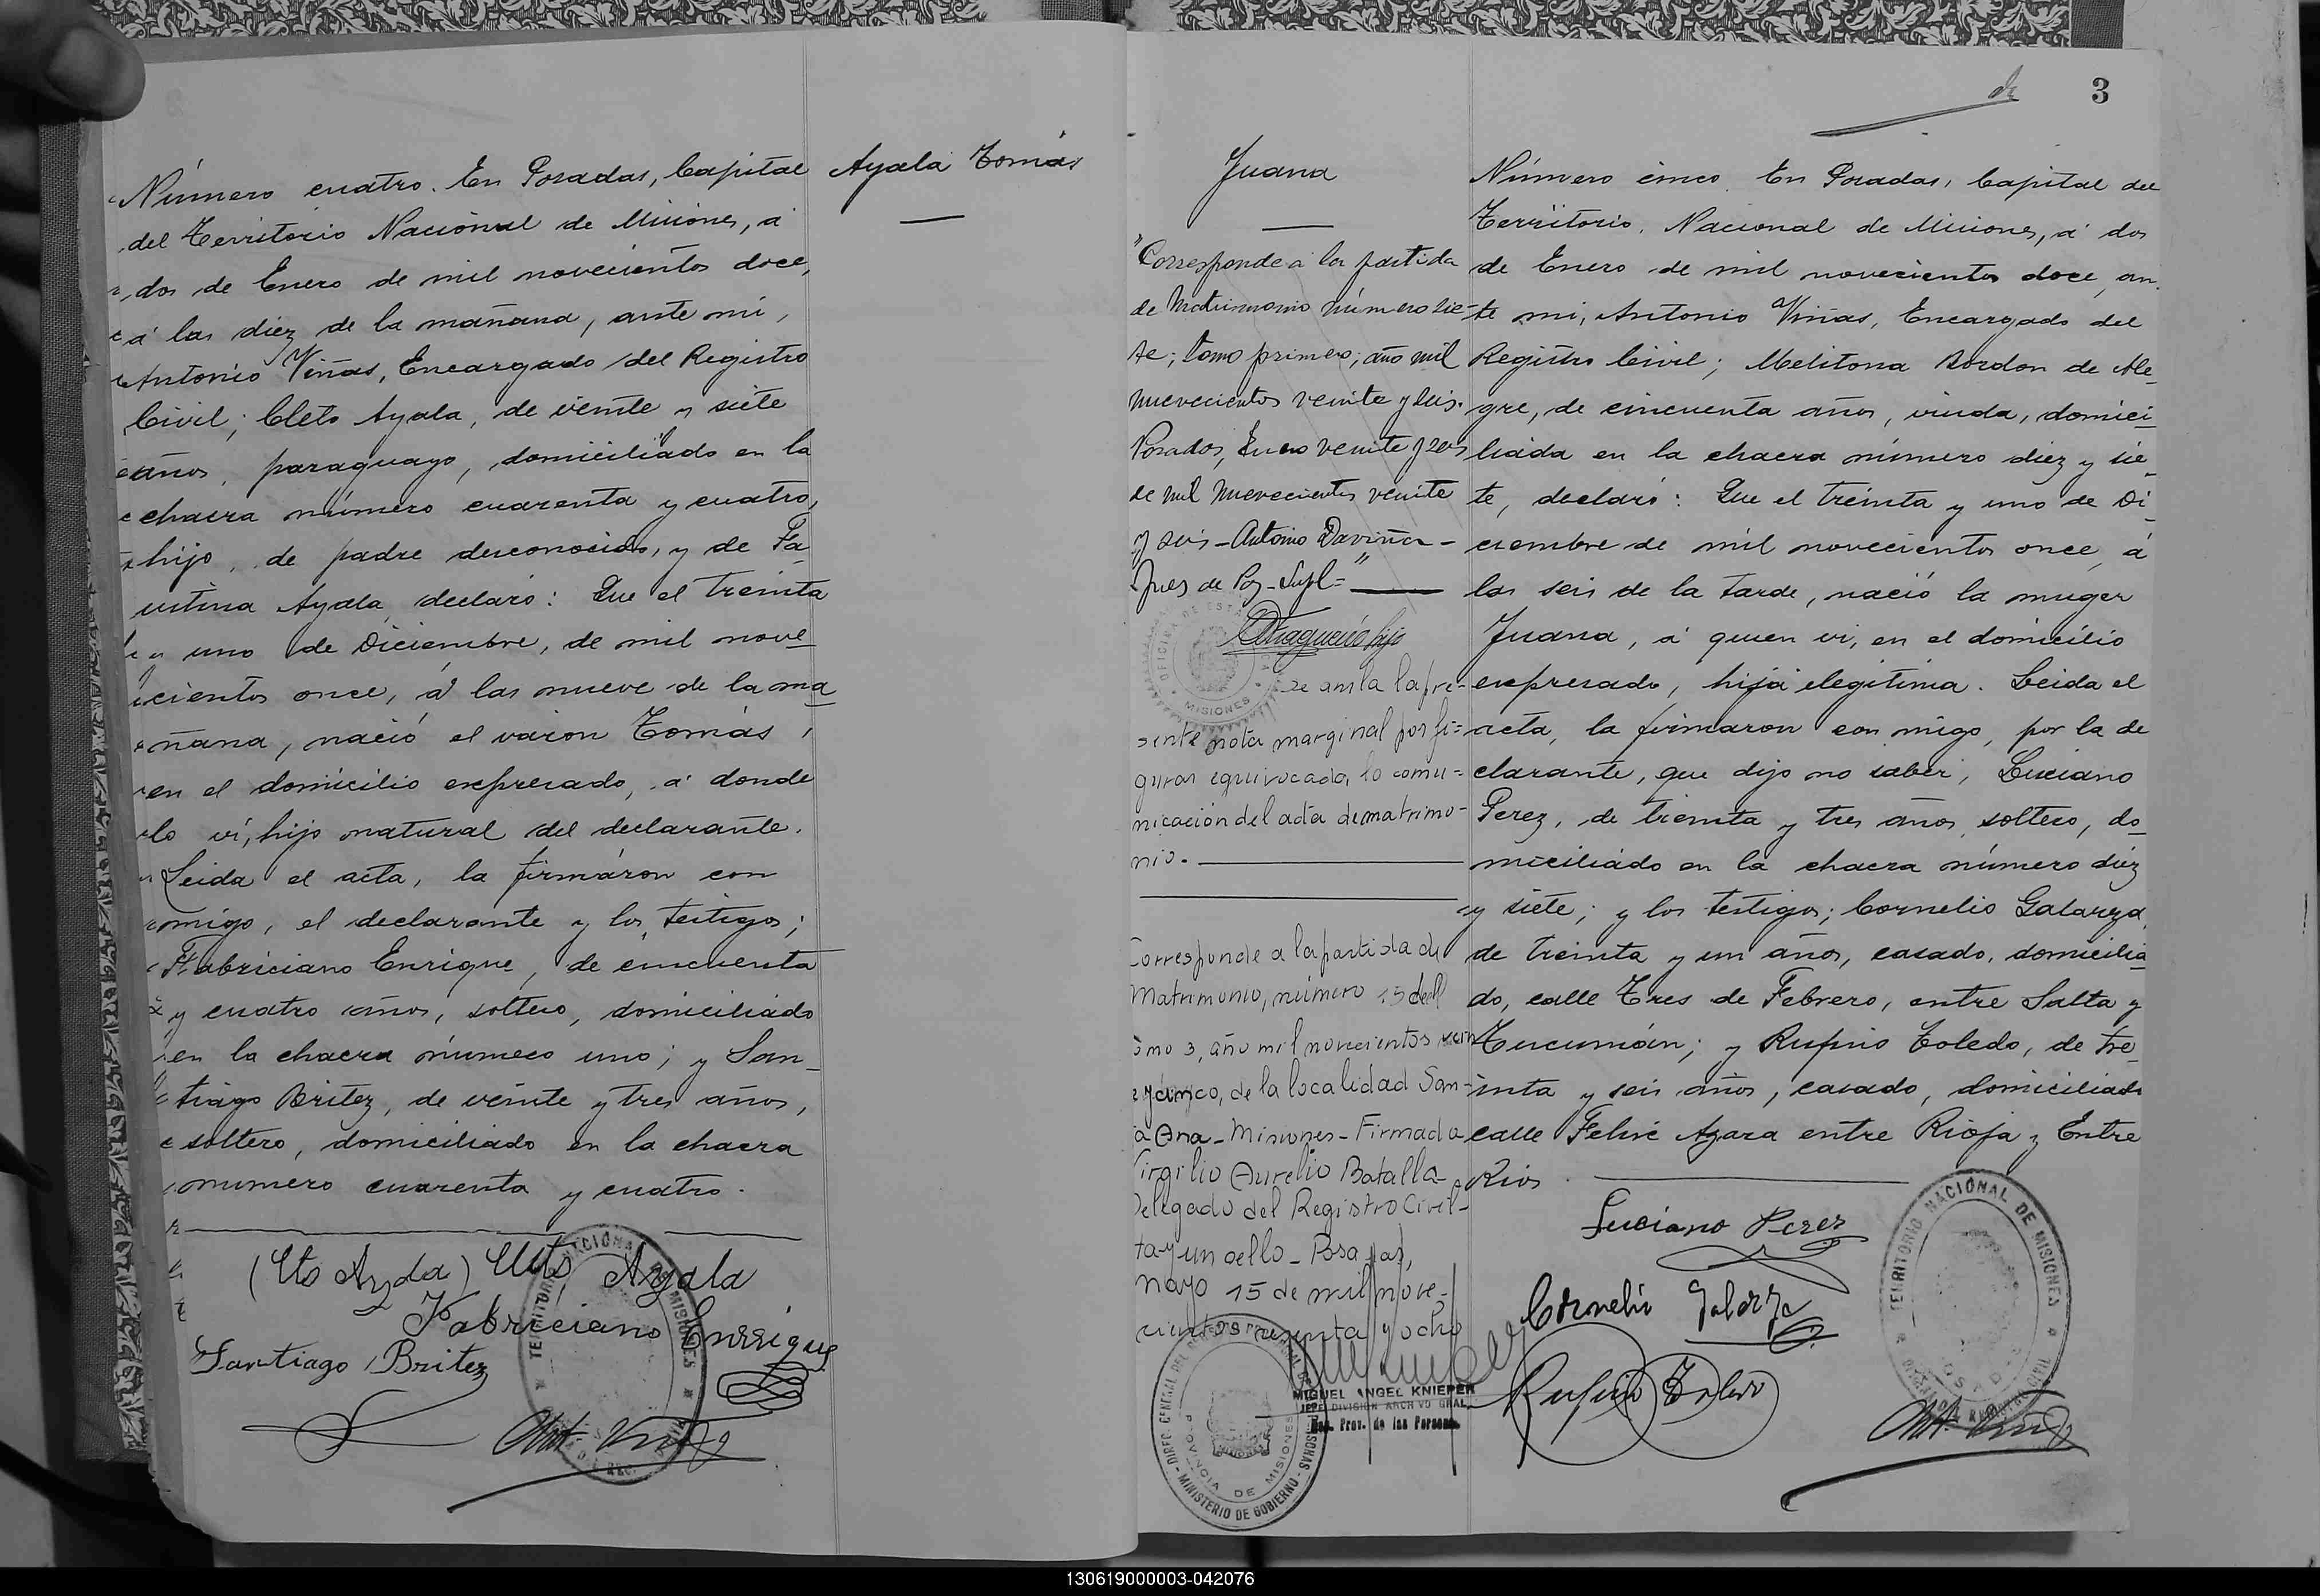 Número cuatro. En Posadas, Capital
del Territorio Nacional de Misiones, á
dos de Enero de mil novecientos doce,
á las diez de la mañana, ante mi,
Antonio Viñas, Encargado del Registro
Civil; Cleto Ayala, de veinte y siete
años, paraguayo, domiciliado en la
chacra número cuarenta y cuatro,
hijo, de padre desconocido, y de Fa
ustina Ayala, declaró: Que el treinta
y uno de Diciembre, de mil nove
cientos once, á las nueve de la ma
ñana, nació el varon Tomás,
en el domicilio expresado, á donde
lo ví, hijo natural del declarante.
Leida el acta, la firmáron con
migo, el declarante y los testigos;
Fabriciano Enrique, de cincuenta
y cuatro años, soltero, domiciliado
en la chacra número uno; y San-
tiago Britez, de veinte y tres años,
soltero, domiciliado en la chacra
numero cuarenta y cuatro.
(Cto Ayala) Cleto Ayala
Fabriciano Enrrique
Santiago Britez
Ant. Viñas
TERRITORIO NACIONAL DE MISIONES
Ayala Tomás
3
Juana
"Corresponde a la partida
de Matrimonio número sie-
te; tomo primero; año mil
nuevecientos veinte y seis.
Posadas, Enero veinte y seis
de mil nuevecientos veinte
y seis - Antonio Daviña -
Juez de Paz - Supl="
MISIONES
Se anula la pre=
sente nota marginal por fi=
gurar equivocada, la comu=
nicación del acta de matrimo-
nio.
Corresponde a la partida de
Matrimonio, número 15 del
omo 3, año mil novecientos vein
e y cinco, de la localidad San-
a Ana - Misiones - Firmado
Virgilio Aurelio Batalla
Delegado del Registro Civil-
ta y un sello - Posadas,
mayo 15 de mil nove-
cientos y ocho
MIGUEL ANGEL KNIEPER
JEFE DIVISION ARCHIVO GRAL.
Reg. Prov. de las Personas
PROVINCIA DE MISIONES
MINISTERIO DE GOBIERNO
Número cinco. En Posadas, Capital del
Territorio, Nacional de Misiones, á dos
de Enero de mil novecientos doce, an
te mi, Antonio Viñas, Encargado del
Registro Civil; Melitona Bordon de Ale-
gre, de cincuenta años, viuda, domici
liada en la chacra número diez y sie
te, declaró: Que el treinta y uno de Di
ciembre de mil novecientos once, á
las seis de la tarde, nació la muger
Juana, á quien vi, en el domicilio
expresado, hija elegitima. Leida el
acta, la firmaron con migo, por la de
clarante, que dijo no saber, Luciano
Perez, de treinta y tres años, soltero, do
miciliado en la chacra número diez
y siete; y los testigos; Cornelio Galarza,
de treinta y un años, casado, domicilia
do, calle Tres de Febrero, entre Salta y
Tucumán; y Rufino Toledo, de tre
inta y seis años, casado, domiciliado
calle Felix Azara entre Rioja y Entre
Rios
Luciano Perez
Cornelio Galarza
Rufino Toledo
Ant. Viñas
TERRITORIO NACIONAL DE MISIONES
130619000003-042076